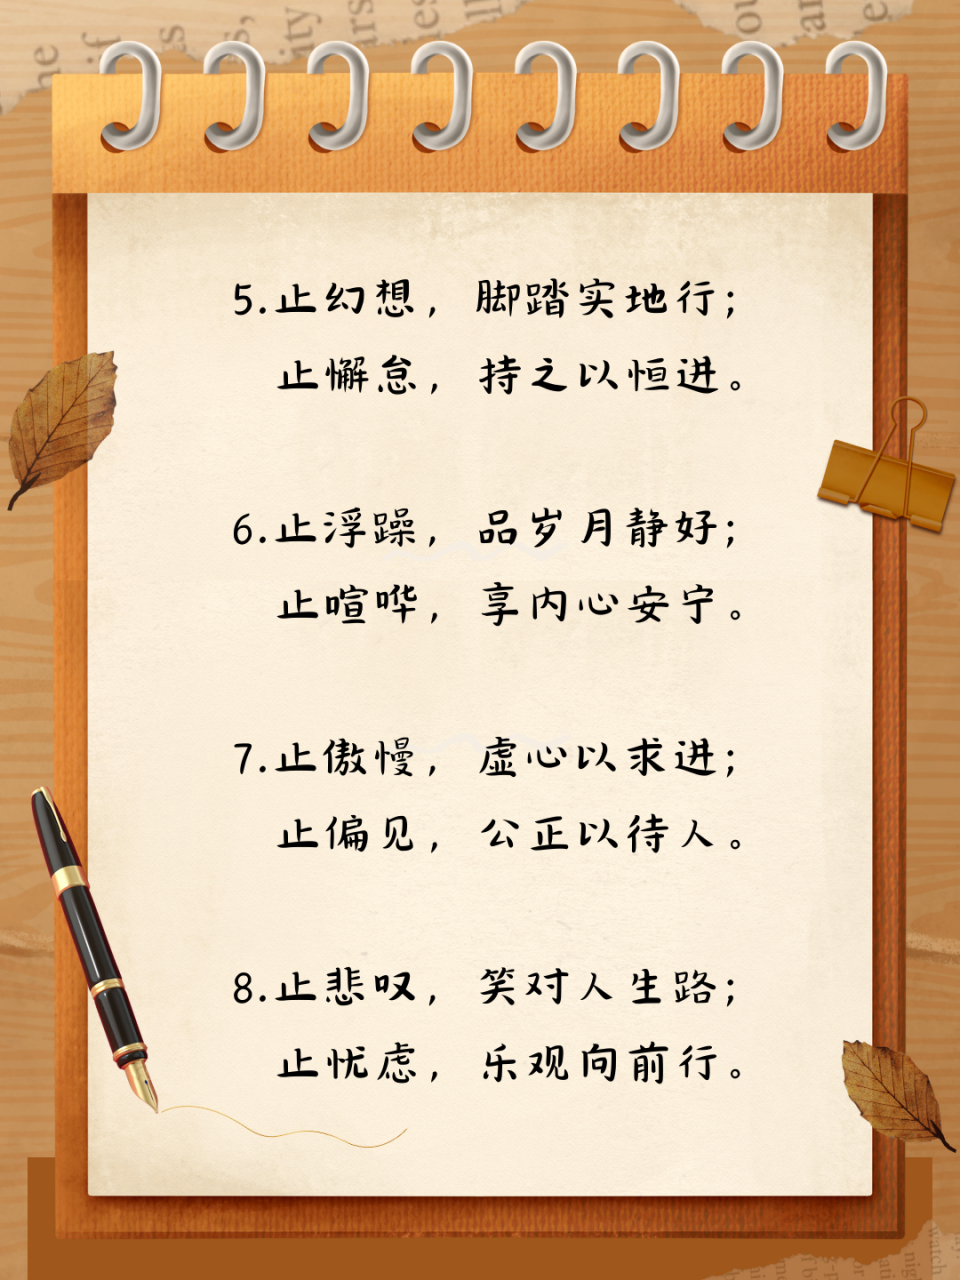 5.止幻想，脚踏实地行；
止懈怠，持之以恒进。
6.止浮躁，品岁月静好；
止喧哗，享内心安宁。
7.止傲慢，虚心以求进；
止偏见，公正以待人。
8.止悲叹，笑对人生路；
止忧虑，乐观向前行。